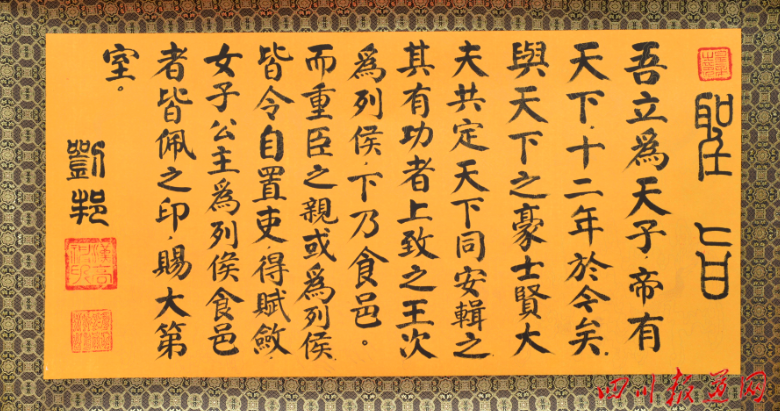 聖旨
吾立爲天子，帝有
天下，十二年於今矣。
與天下之豪士賢大
夫共定天下同安輯之
其有功者上致之王次
爲列侯，下乃食邑。
而重臣之親或爲列侯，
皆令自置吏，得賦斂，
女子公主爲列侯食邑
者皆佩之印，賜大第
室。
劉邦
四川报道网